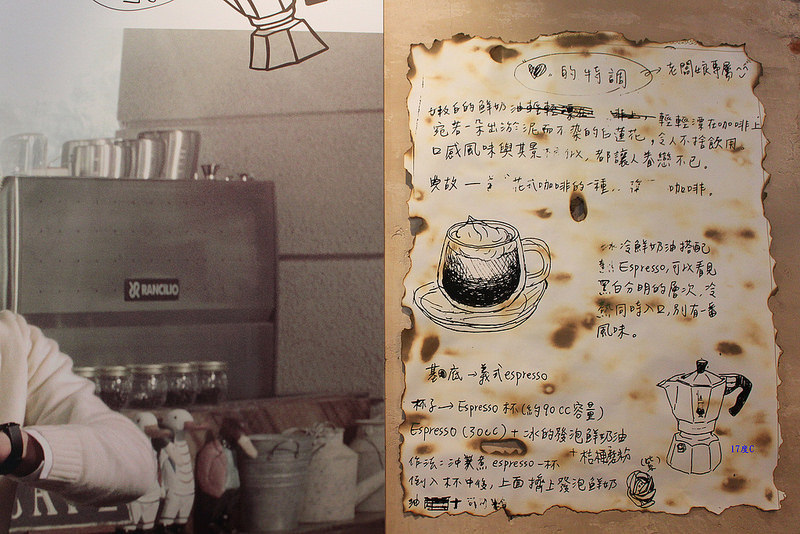 RANCILIO
的特調 → 老闆娘專屬
嫩白的鮮奶油 輕輕漂在咖啡上
宛若一朵出淤泥而不染的白蓮花，令人不捨飲用
口感風味與其景 都讓人眷戀不已。
典故 — 花式咖啡的一種 咖啡。
冰冷鮮奶油搭配
Espresso,可以看見
黑白分明的層次,冷
熱同時入口,別有一番
風味。
基底 → 義式espresso
杯子 → Espresso 杯(約90cc容量)
Espresso (30cc) + 冰的發泡鮮奶油
作法: 沖煮 espresso 一杯
倒入杯中後，上面擠上發泡鮮奶
油
17度C